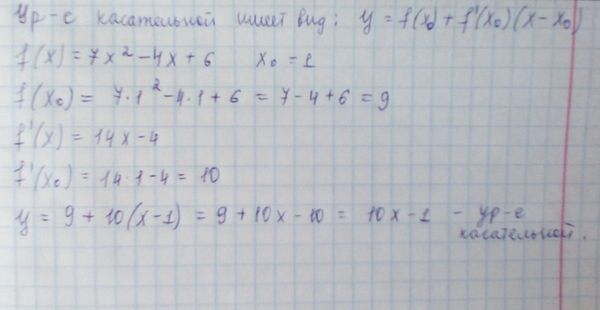 Ур-е касательной имеет вид: y = f(x₀) + f'(x₀)(x - x₀)
f(x) = 7x² - 4x + 6 x₀ = 1
f(x₀) = 7·1² - 4·1 + 6 = 7 - 4 + 6 = 9
f'(x) = 14x - 4
f'(x₀) = 14·1 - 4 = 10
y = 9 + 10(x - 1) = 9 + 10x - 10 = 10x - 1 - ур-е
касательной.